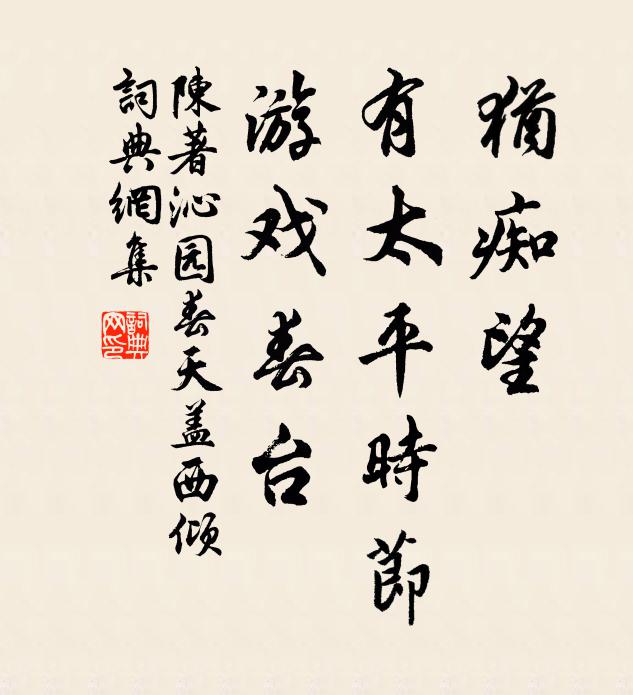 猶痴望
有太平時節
游戏春台
陳著沁园春天盖西倾
詞典網集
詞典
网印